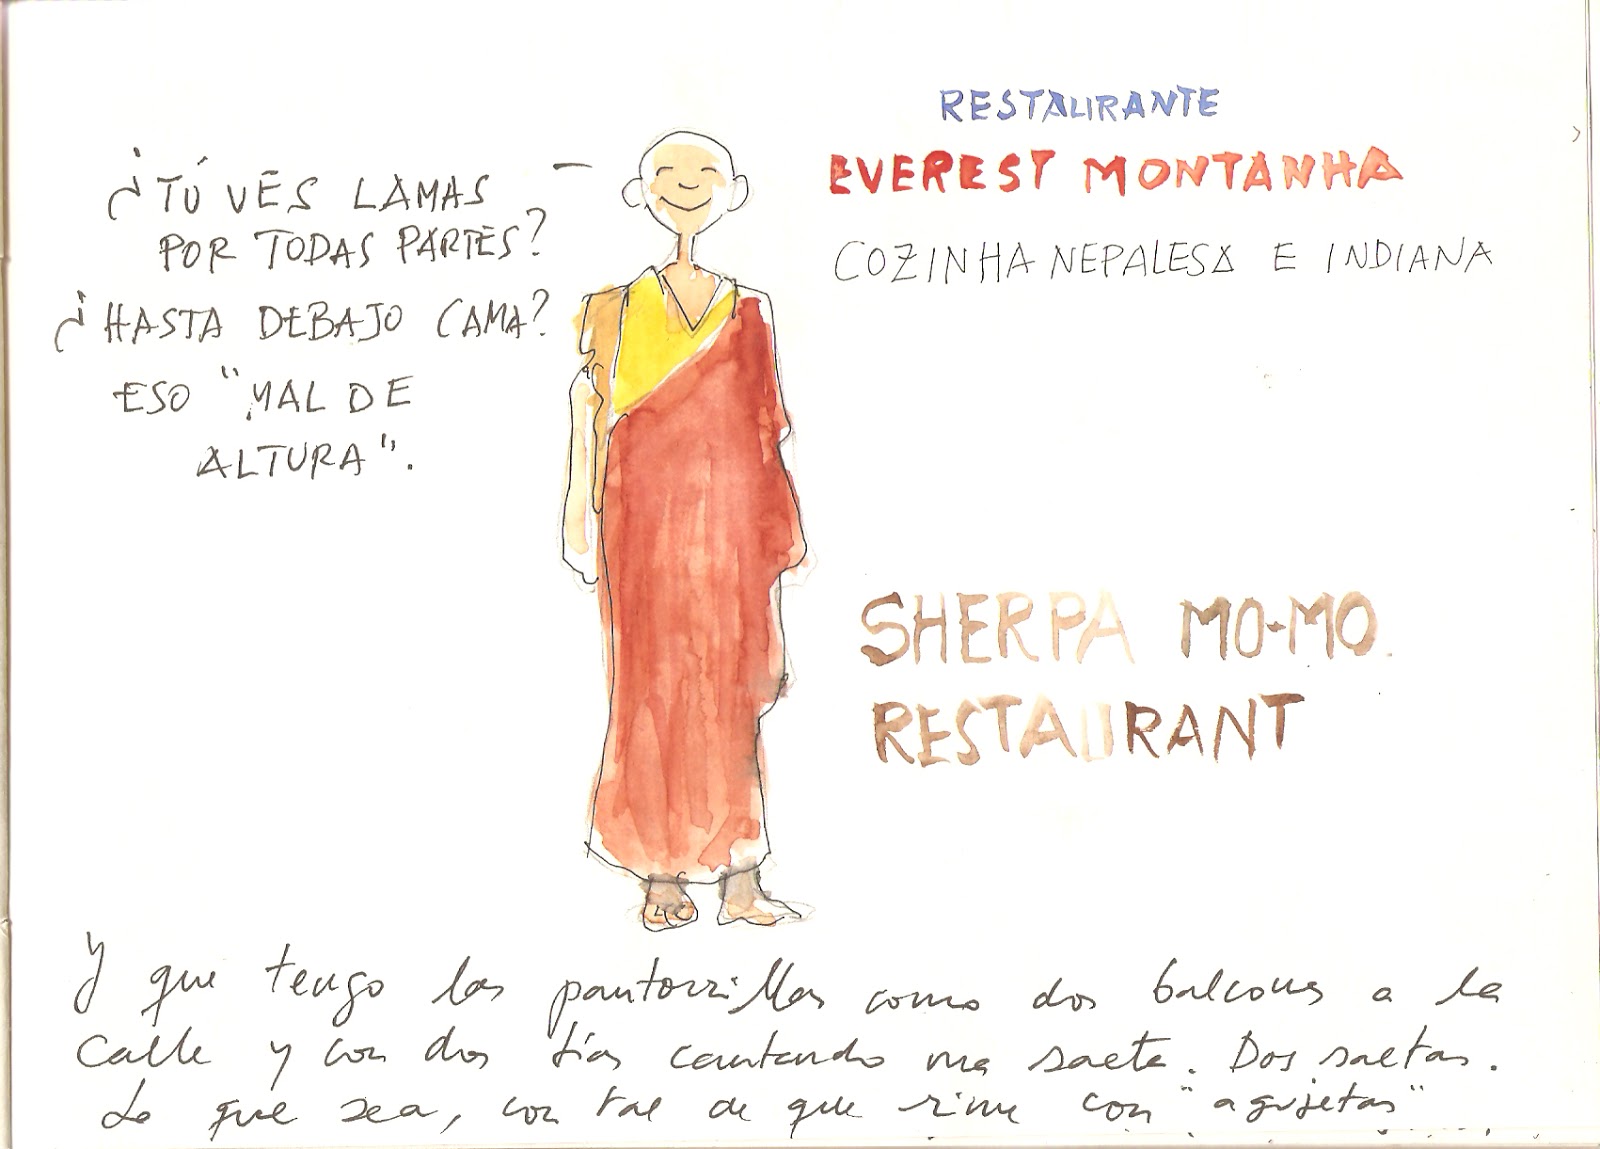 ¿TÚ VES LAMAS
POR TODAS PARTES?
¿HASTA DEBAJO CAMA?
ESO "MAL DE
ALTURA".
RESTAURANTE
EVEREST MONTANHA
COZINHA NEPALESA E INDIANA
SHERPA MO-MO
RESTAURANT
Y que tengo las pantorrillas como dos balcones a la
calle y con dos tías cantando una saeta. Dos saetas.
Lo que sea, con tal de que rime con "agujetas"